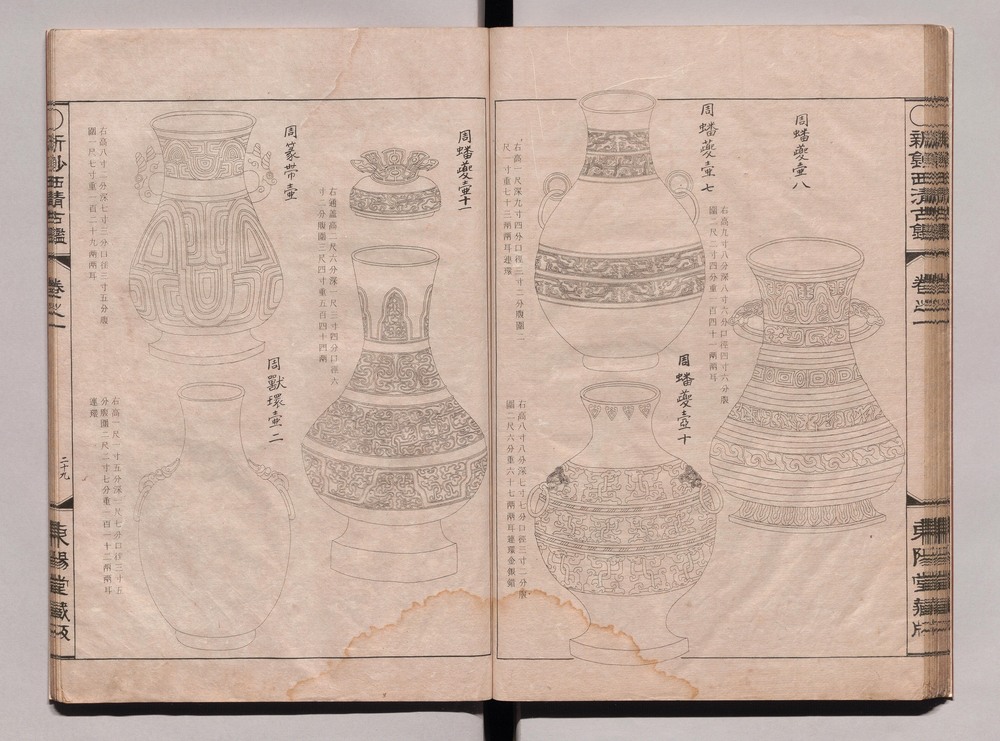 周蟠夔壺八
右高九寸八分深八寸六分口徑四寸六分腹
圍二尺二寸四分重一百一十一兩兩耳
周蟠夔壺七
右高一尺深九寸四分口徑三寸二分腹圍二
尺一寸七分重七十三兩兩耳連環
周蟠夔壺十
右高八寸八分深七寸七分口徑三寸二分腹
圍二尺六分重六十七兩兩耳連環金銀錯
新鐫西清古鑑
卷之一
東陽堂藏版
周蟠夔壺十一
右通蓋高一尺六分深一尺三寸四分口徑六
寸二分腹圍三尺四寸重五百四十四兩
周篆帶壺
右高八寸一分深七寸三分口徑三寸五分腹
圍一尺七寸重一百二十九兩兩耳
周獸環壺二
右高一尺一寸五分深一尺七分口徑三寸五
分腹圍二尺二寸七分重一百一十二兩兩耳
連環
新鐫西清古鑑
卷之一
二十九
東陽堂藏版